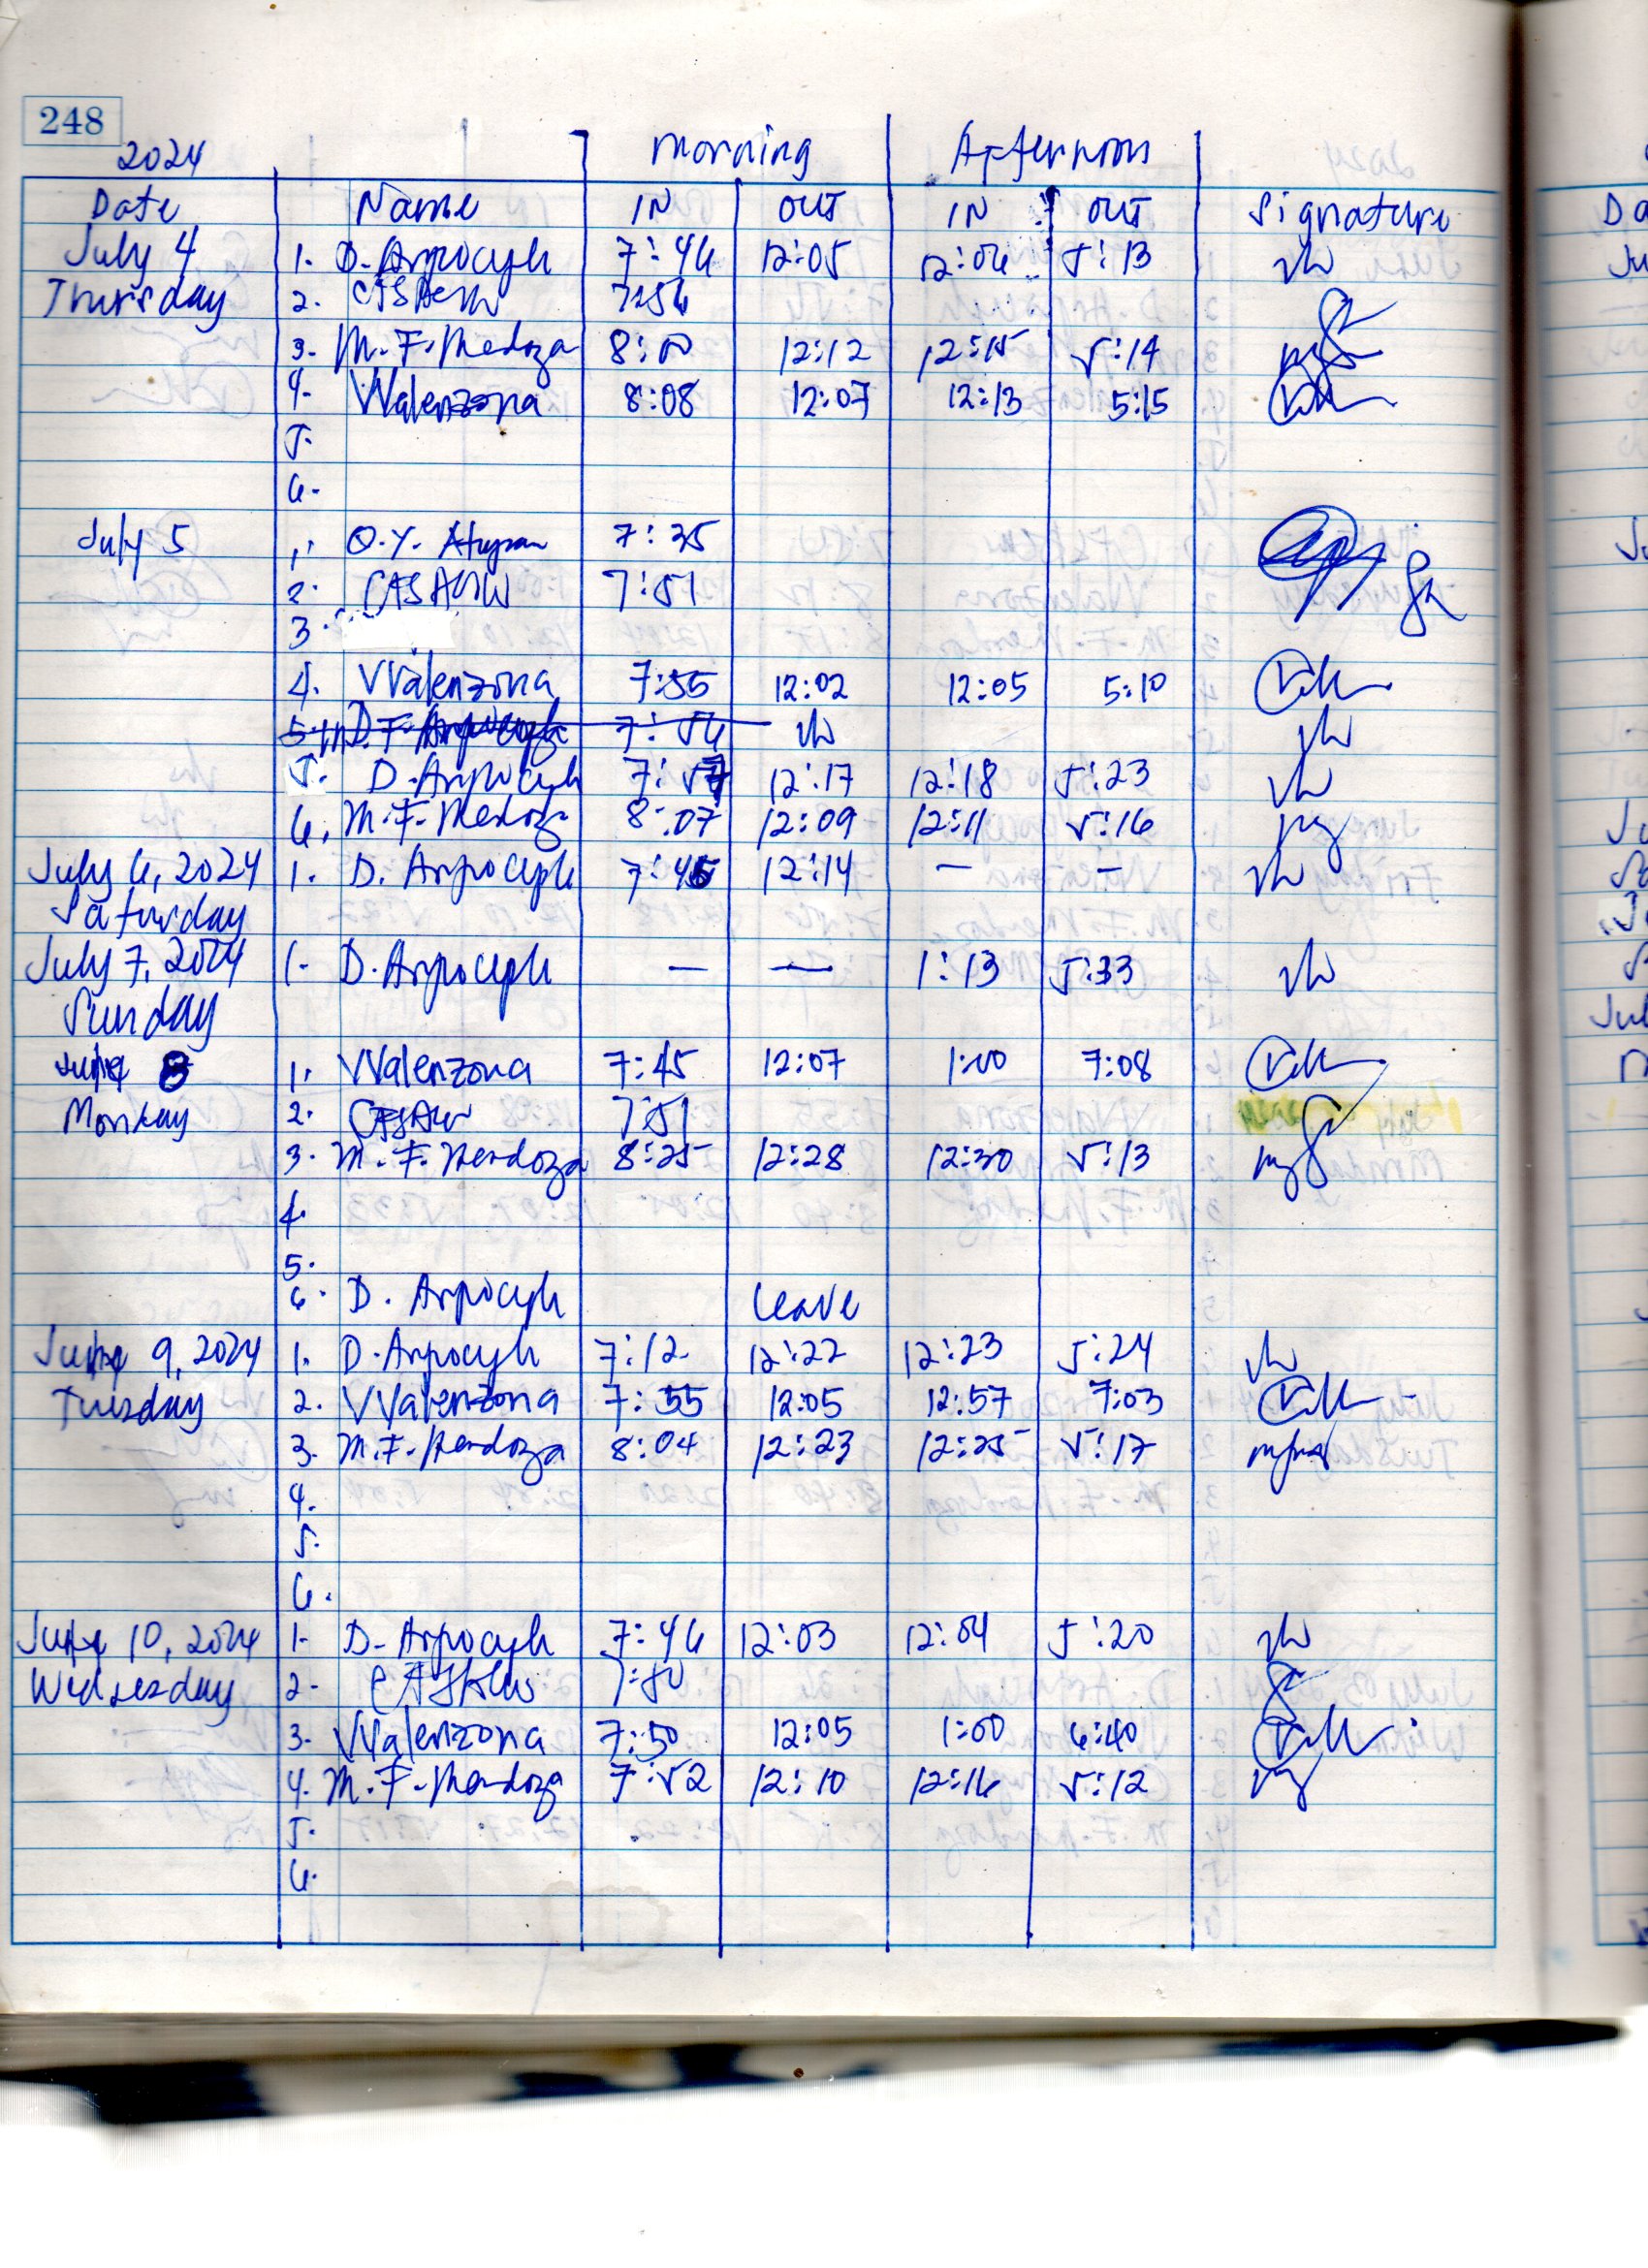 248
2024 Morning Apfternoon
Date Name IN OUT IN OUT Signature
July 4 1. D. Arpoceph 7:46 12:05 12:06 5:13
Thursday 2. 7:56
3. M. F. Medoza 8:10 12:12 12:15 5:14
4. VValenzona 8:08 12:07 12:13 5:15
5.
6.
July 5 1. O.Y. 7:35
2. 7:51
3.
4. VValenzona 7:55 12:02 12:05 5:10
5. 7:56
5. D. Arpoceph 7:57 12:17 12:18 5:23
6. M.F. Medoza 8:07 12:09 12:11 5:16
July 6, 2024 1. D. Arpoceph 7:45 12:14 — —
Saturday
July 7, 2024 1. D. Arpoceph — — 1:13 5:33
Sunday
8 1. VValenzona 7:45 12:07 1:00 7:08
Monday 2. 7:51
3. M. F. Mendoza 8:25 12:28 12:30 5:13
4.
5.
6. D. Arpoceph leave
9, 2024 1. D. Arpoceph 7:12 12:22 12:23 5:24
Tuesday 2. VValenzona 7:55 12:05 12:57 7:03
3. M.F. Mendoza 8:04 12:23 12:25 5:17
4.
5.
6.
10, 2024 1. D. Arpoceph 7:46 12:03 12:04 5:20
Wednesday 2. 7:50
3. VValenzona 7:50 12:05 1:00 6:40
4. M. F. Mendoza 7:52 12:10 12:16 5:12
5.
6.